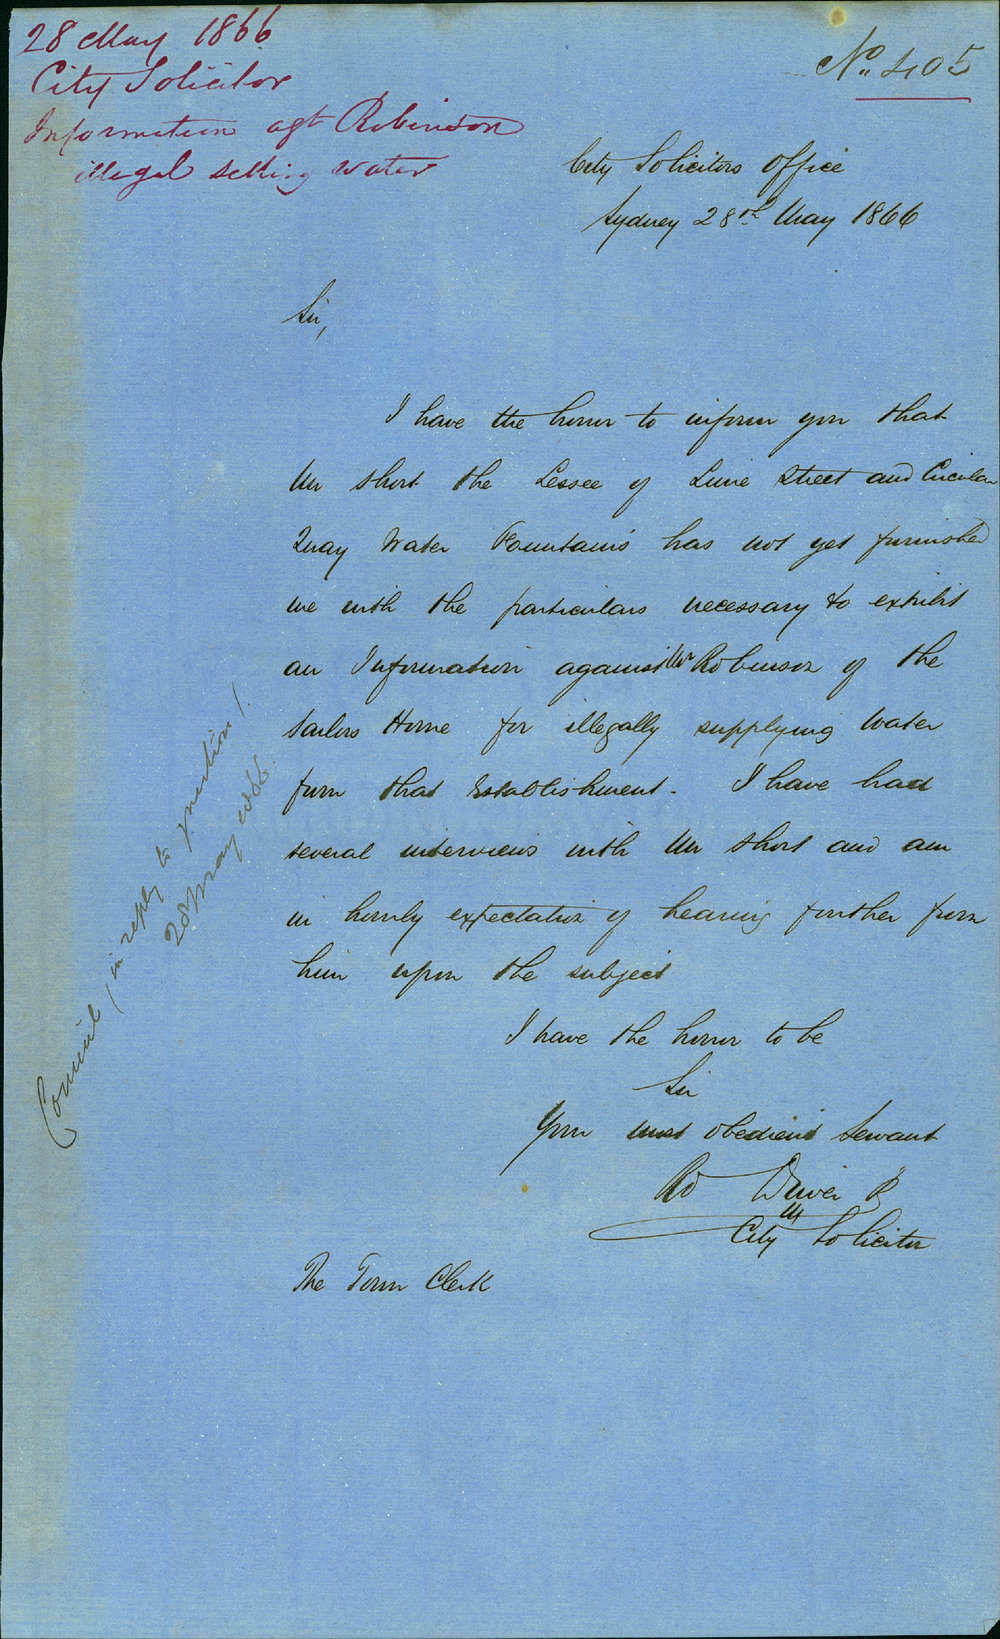 28 May 1866
City Solicitor
Information agt Robinson
illegal selling water
No. 405
City Solicitors Office
Sydney 28th May 1866
Sir,
I have the honor to inform you that
Mr Short the Lessee of Lime Street and Circular
Quay Water Fountains has not yet furnished
me with the particulars necessary to exhibit
an Information against Mr Robinson of the
Sailors Home for illegally supplying Water
from that Establishment. I have had
several interviews with Mr Short and am
in hourly expectation of hearing further from
him upon the subject
I have the honor to be
Sir
Your most obedient Servant
Rd Driver Jr
City Solicitor
The Town Clerk
Council, (in reply to question).
28 May 1866.